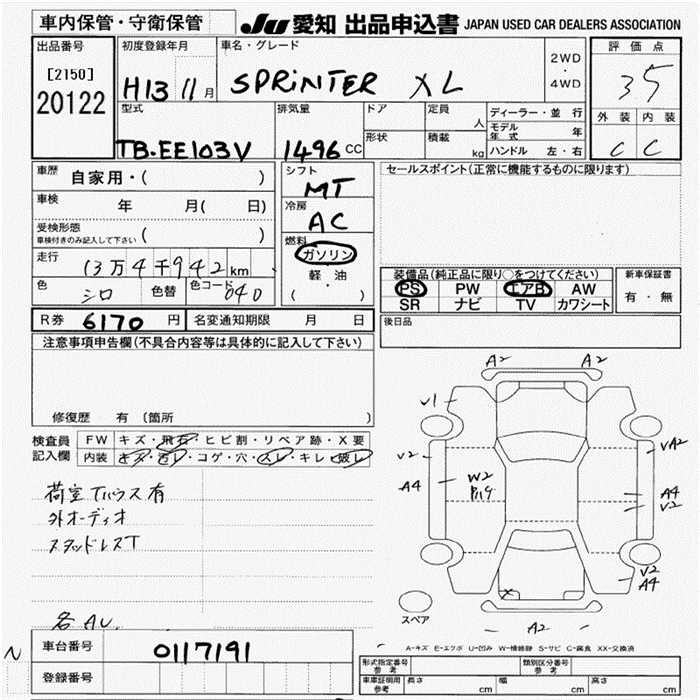 車内保管・守衛保管
JU 愛知 出品申込書 JAPAN USED CAR DEALERS ASSOCIATION
出品番号
[2150]
20122
初度登録年月
H13 11月
車名・グレード
SPRINTER XL
2WD
・
4WD
評価点
35
外装 内装
C C
型式
TB-EE103V
排気量
1496 CC
ドア
形状
定員
人
積載
kg
ディーラー・並行
モデル年式 年
ハンドル 左・右
車歴 自家用・( )
車検 年 月( 日)
受検形態
車検付きのみ記入して下さい ( )
走行 13万4千942km
色 シロ 色替 色コード 040
シフト
MT
冷房
AC
燃料
ガソリン
軽油
( ・ )
セールスポイント(正常に機能するものに限ります)
装備品(純正品に限り○をつけてください)
PS PW エアB AW
SR ナビ TV カワシート
新車保証書
有・無
R券 6170 円 名変通知期限 月 日
後日品
注意事項申告欄(不具合内容等は具体的に記入して下さい)
修復歴 有 〔箇所 〕
検査員記入欄
FW キズ・飛石・ヒビ割・リペア跡・X要
内装 キズ・汚レ・コゲ・穴・スレ・キレ・破レ
荷室Tハウス有
外オーディオ
スタッドレスT
各AU.
A2 A2
V1
VA2
V2
A4
W2
A4
V2
V2
A4
X
スペア
A2
A-キズ E-エクボ U-凹み W-補修跡 S-サビ C-腐食 XX-交換済
N
車台番号 0117191
登録番号
形式指定番号
参考
類別区分番号
参考
車庫証明用
参考
長さ cm 幅 cm 高さ cm